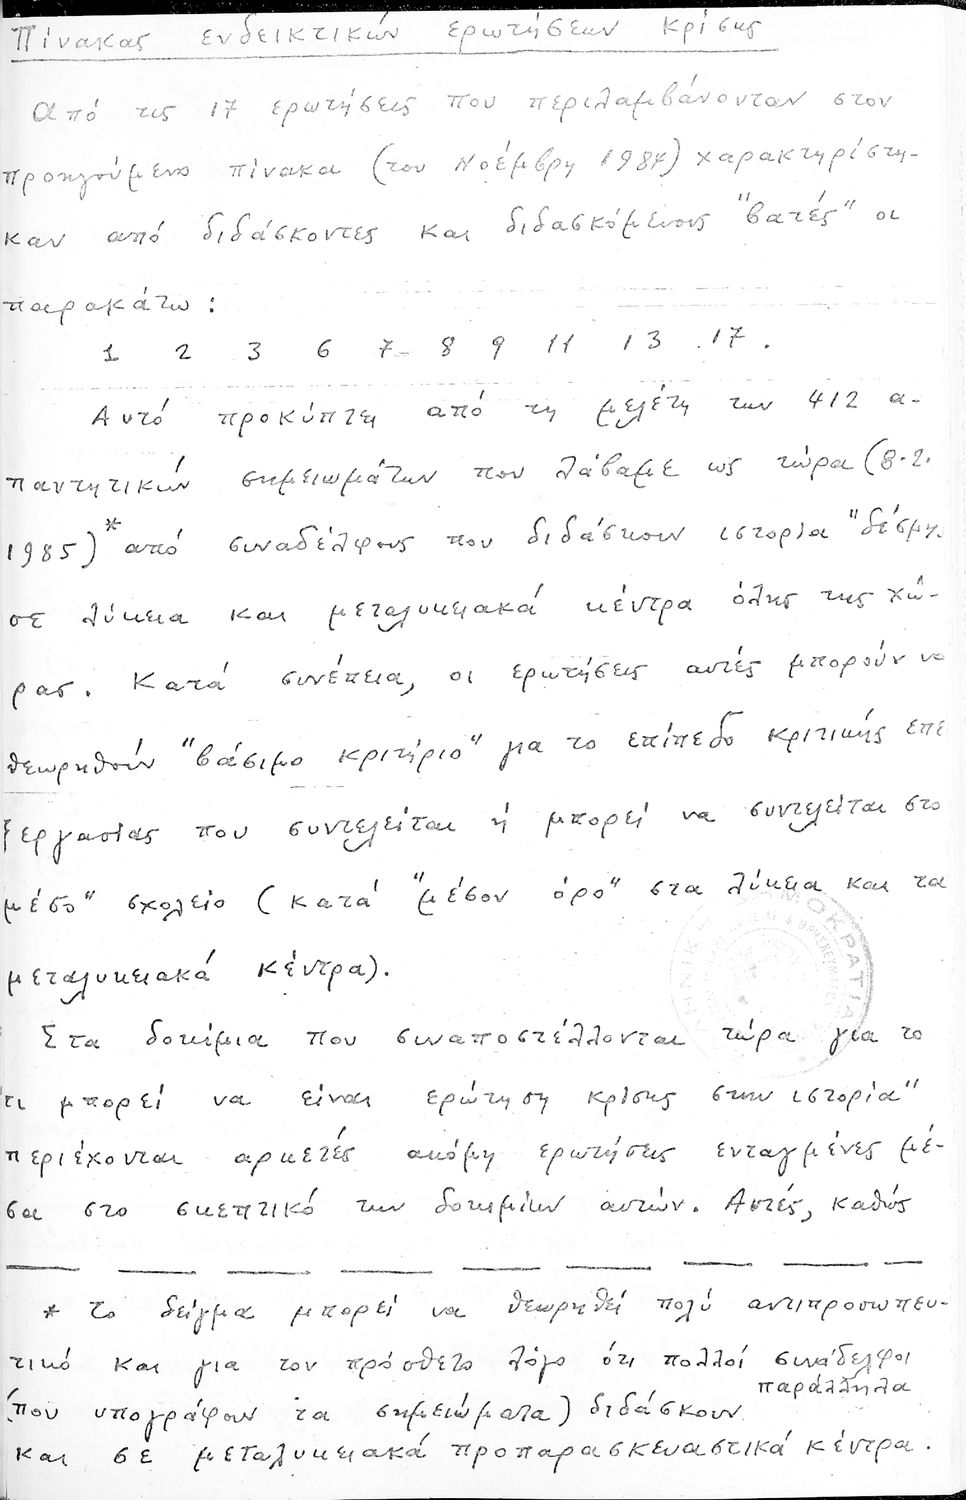 Πίνακας ενδεικτικών ερωτήσεων κρίσης
Από τις 17 ερωτήσεις που περιλαμβάνονταν στον
προηγούμενο πίνακα (του Νοέμβρη 1984) χαρακτηρίστη-
καν από διδάσκοντες και διδασκόμενους "βατές" οι
παρακάτω:
1 2 3 6 7 8 9 11 13 17.
Αυτό προκύπτει από τη μελέτη των 412 α-
παντητικών σημειωμάτων που λάβαμε ως τώρα (8.2.
1985)* από συναδέλφους που διδάσκουν ιστορία "δέσμης
σε λύκεια και μεταλυκειακά κέντρα όλης της χώ-
ρας. Κατά συνέπεια, οι ερωτήσεις αυτές μπορούν να
θεωρηθούν "βάσιμο κριτήριο" για το επίπεδο κριτικής επε
ξεργασίας που συντελείται ή μπορεί να συντελείται στο
μέσο" σχολείο (κατά "μέσον όρο" στα λύκεια και τα
μεταλυκειακά κέντρα).
Στα δοκίμια που συναποστέλλονται τώρα για το
τι μπορεί να είναι ερώτηση κρίσης στην ιστορία"
περιέχονται αρκετές ακόμη ερωτήσεις ενταγμένες μέ-
σα στο σκεπτικό των δοκιμίων αυτών. Αυτές, καθώς
* Το δείγμα μπορεί να θεωρηθεί πολύ αντιπροσωπευ-
τικό και για τον πρόσθετο λόγο ότι πολλοί συνάδελφοι
(που υπογράφουν τα σημειώματα) διδάσκουν παράλληλα
και σε μεταλυκειακά προπαρασκευαστικά κέντρα.
ΜΟΚΡΑΤΙΑ